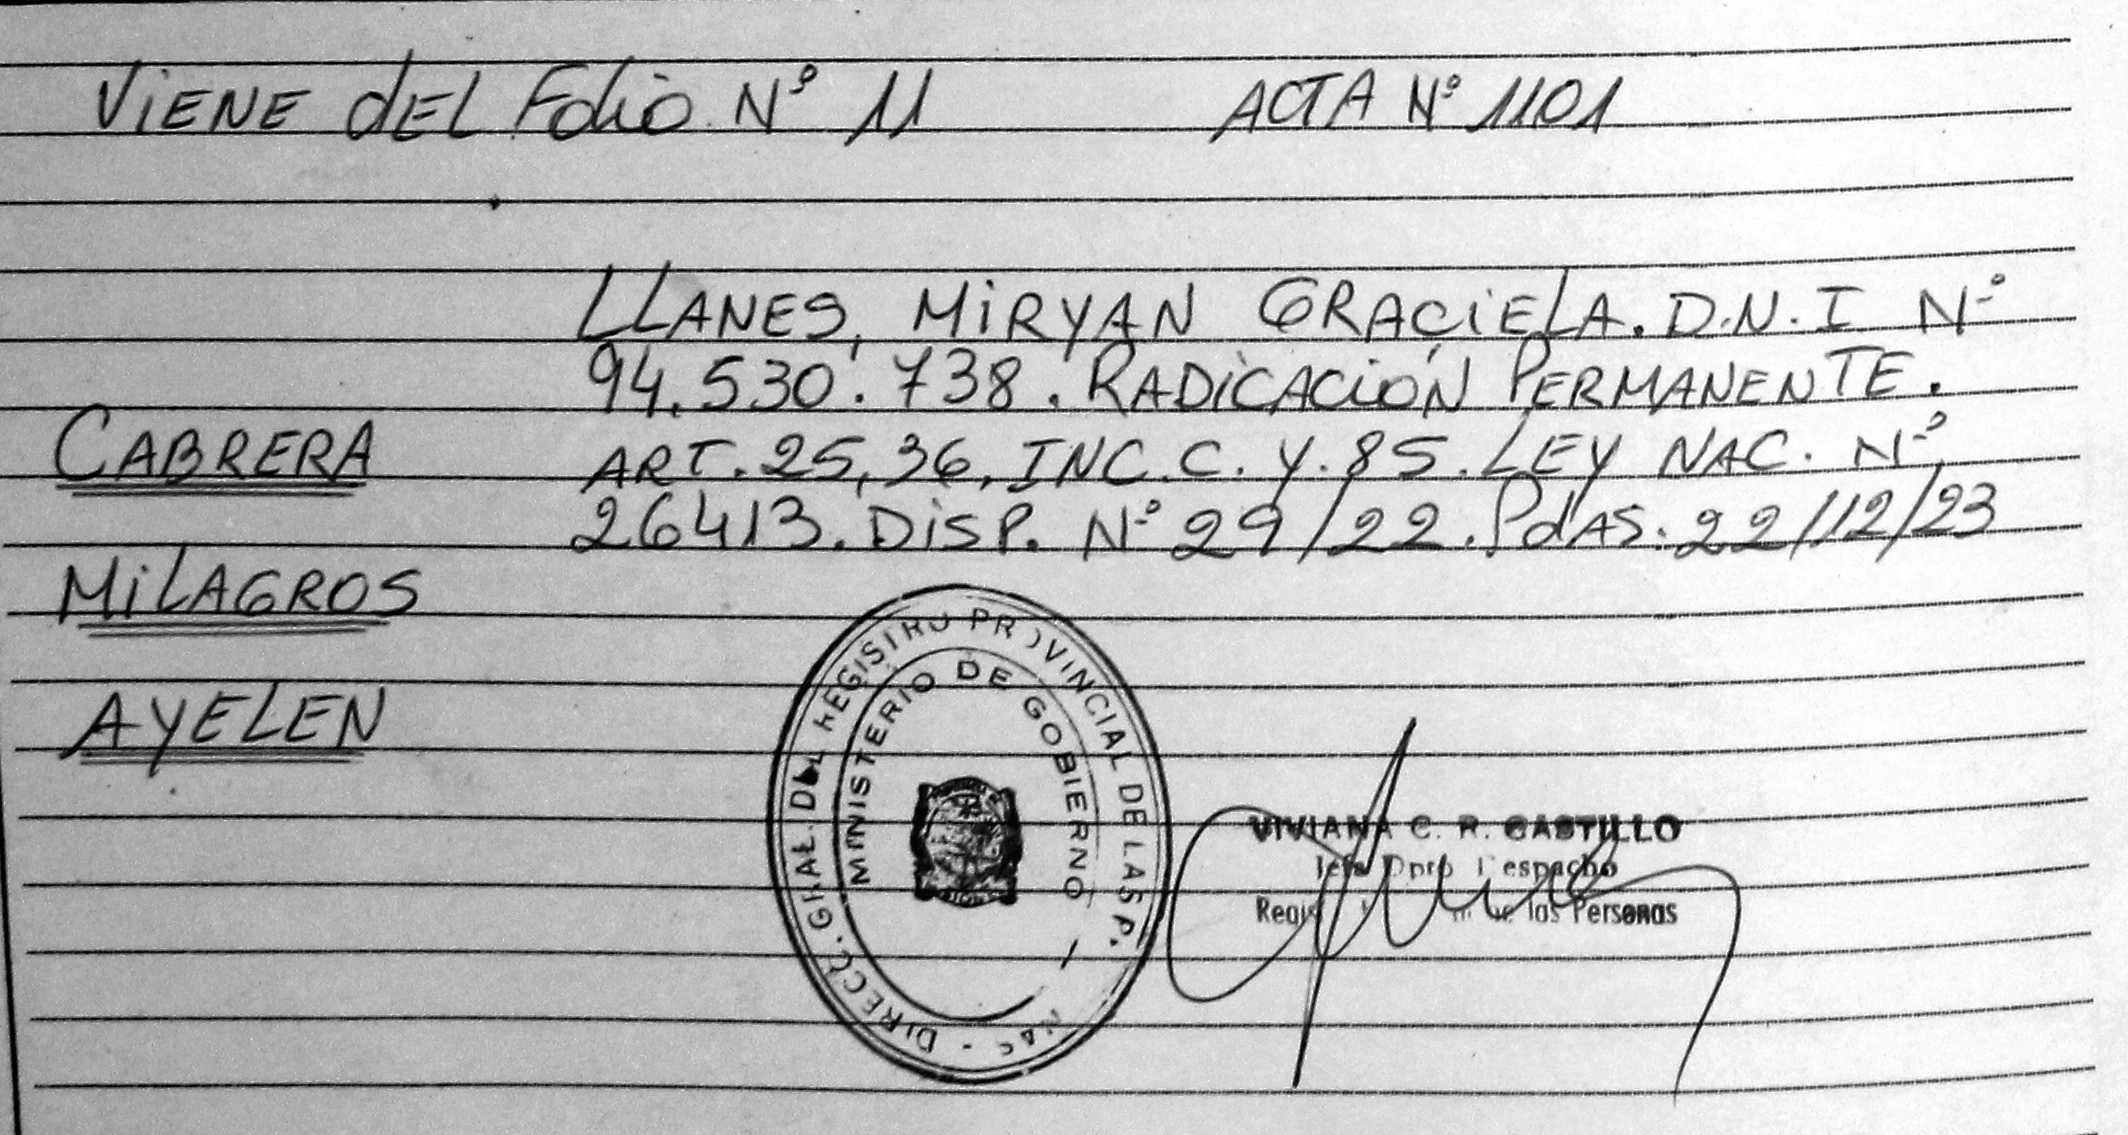 ViENE dEL Folio Nº 11
ACTA Nº 1101
LLANES, MiRYAN GRACiELA. D.N.I Nº
94.530.738. RADiCACiÓN PERMANENTE.
CABRERA
ART. 25, 36, INC. C. Y. 85. LEY NAC. Nº
26413. DiSP. Nº 29/22. PdAS. 22/12/23
MiLAGROS
AYELEN
DIRECC. GRAL. DEL REGISTRO PROVINCIAL DE LAS P.
MINISTERIO DE GOBIERNO
VIVIANA C. R. CASTILLO
Jefa Dpto Despacho
de las Personas